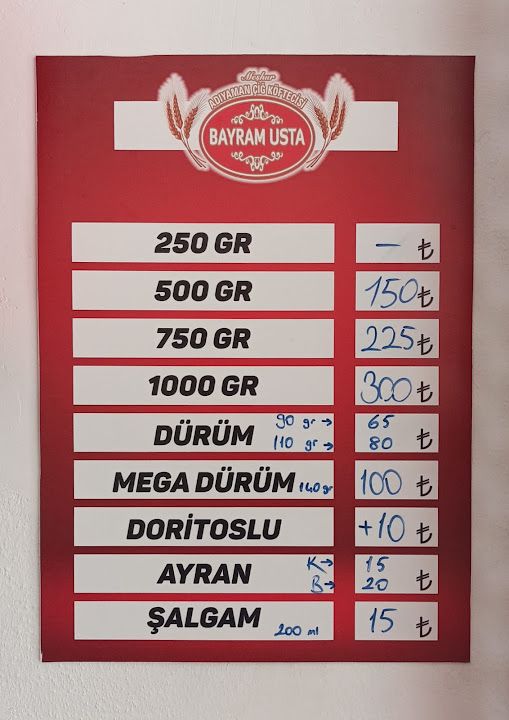 Meşhur
ADIYAMAN ÇİĞ KÖFTECİSİ
BAYRAM USTA
250 GR - ₺
500 GR 150 ₺
750 GR 225 ₺
1000 GR 300 ₺
DÜRÜM 90 gr → 65 ₺
110 gr → 80
MEGA DÜRÜM 140 gr 100 ₺
DORİTOSLU +10 ₺
AYRAN K → 15 ₺
B → 20
ŞALGAM 200 ml 15 ₺